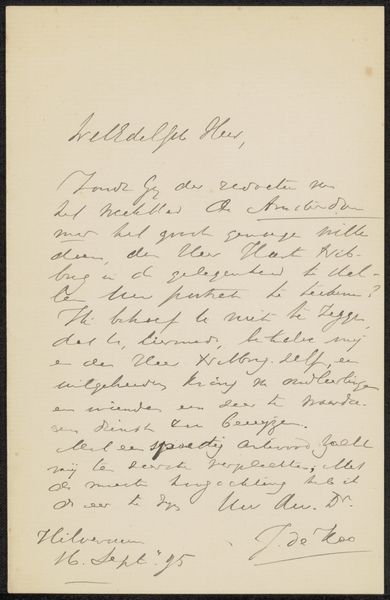 WelEdelGeb Heer,
Zoudt Gij der redactie van
het weekblad De Amsterdammer
het groot genoegen wille
doen, den Heer Haet
in de gelegenheid te stel-
len Uw portret te teekenen?
Ik behoef U niet te zeggen,
dat U, hiermede, behalve mij
en den Heer zelf, een
uitgebreiden kring
en vrienden een zeer te waardee-
ren dienst zou bewijzen.
Met een spoedig antwoord zoudt
mij ten zeerste verplichten; Met
de meeste hoogachting heb ik
de eer te zijn Uw Dw. Dr.
Hilversum J. de Koo
16 Sept. 95